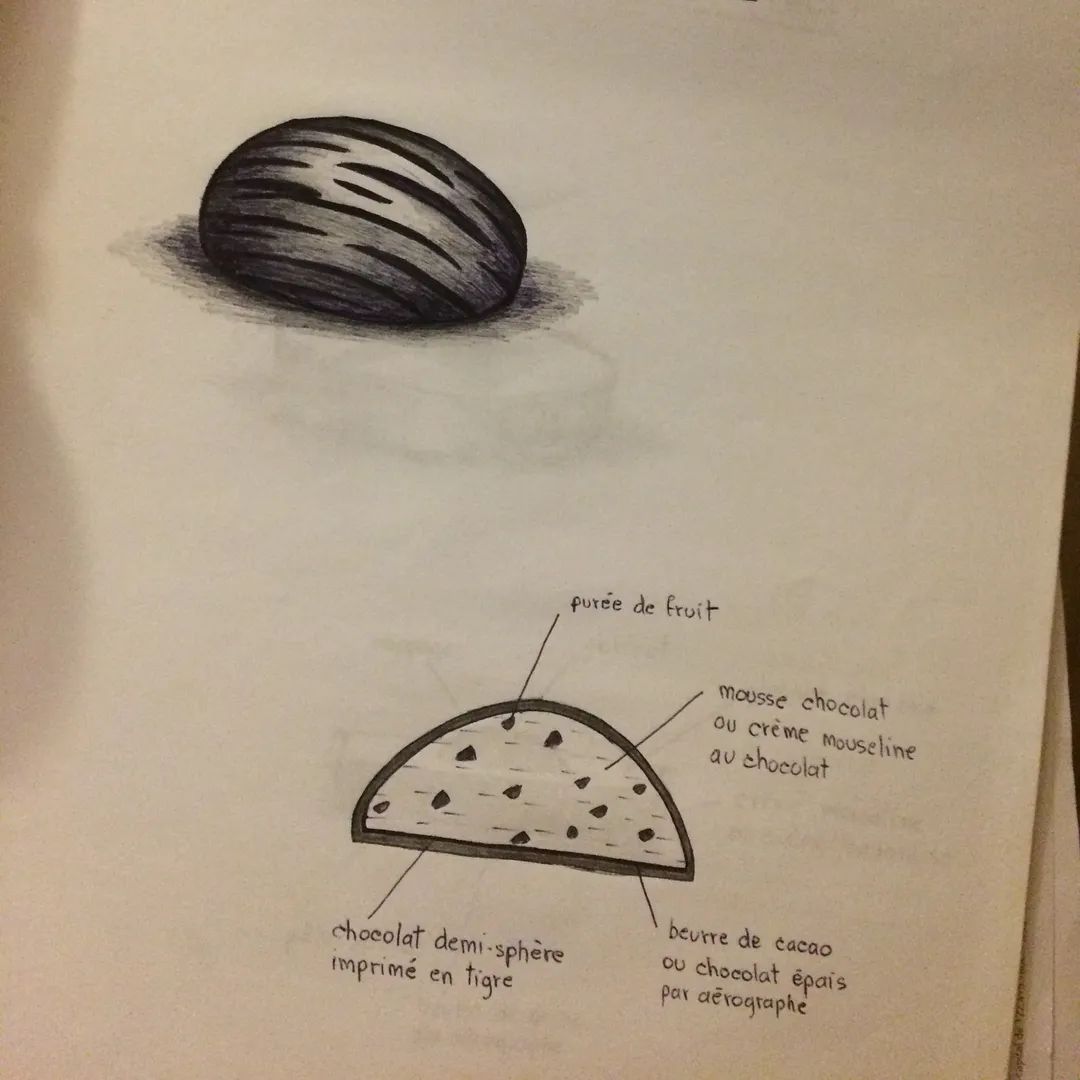 purée de fruit
mousse chocolat
ou crème mouseline
au chocolat
chocolat demi-sphère
imprimé en tigre
beurre de cacao
ou chocolat épais
par aérographe